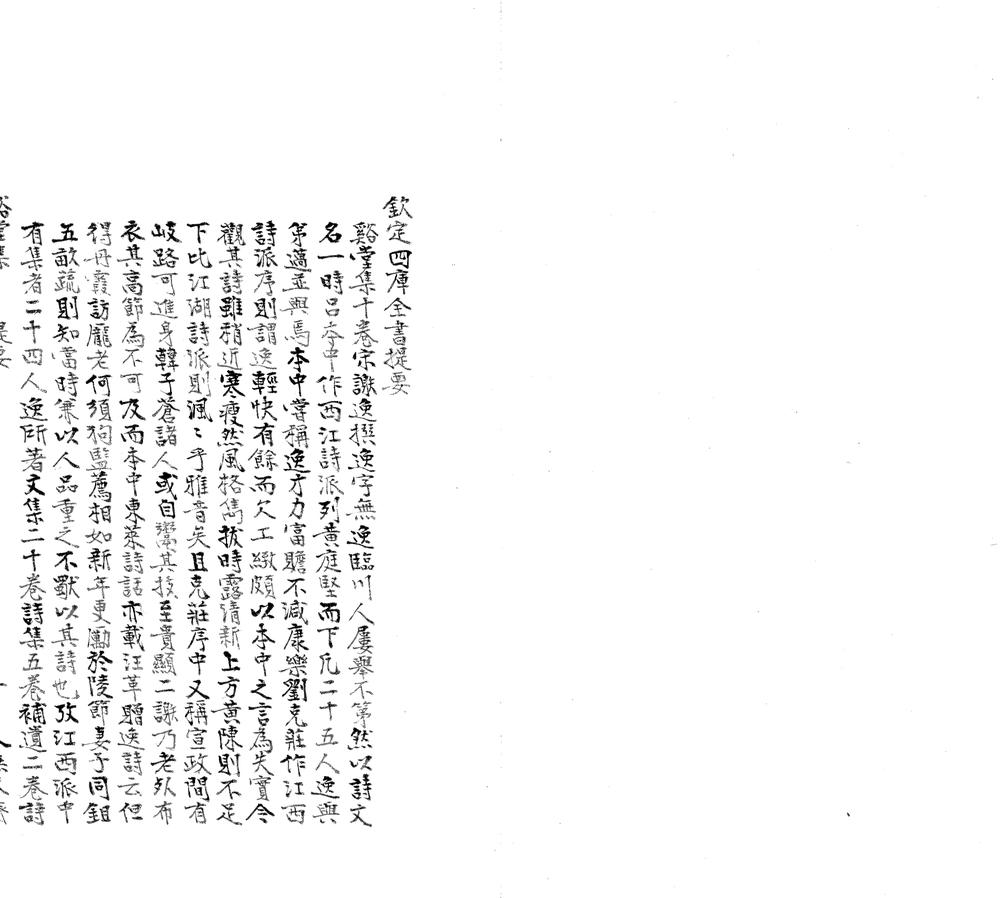 欽定四庫全書提要
谿堂集十卷宋謝逸撰逸字無逸臨川人屢舉不第然以詩文
名一時呂本中作西江詩派列黃庭堅而下凡二十五人逸與
弟薖並與焉本中嘗稱逸才力富贍不減康樂劉克莊作江西
詩派序則謂逸輕快有餘而欠工緻頗以本中之言為失實今
觀其詩雖稍近寒瘦然風格雋拔時露清新上方黃陳則不足
下比江湖詩派則渢〻乎雅音矣且克莊序中又稱宣政間有
岐路可進身韓子蒼諸人或自鬻其技至貴顯二謝乃老死布
衣其高節為不可及而本中東萊詩話亦載汪革贈逸詩云但
得丹霞訪龐老何須狗監薦相如新年更勵於陵節妻子同鉏
五畝蔬則知當時兼以人品重之不獨以其詩也攷江西派中
有集者二十四人逸所著文集二十卷詩集五卷補遺二卷詩